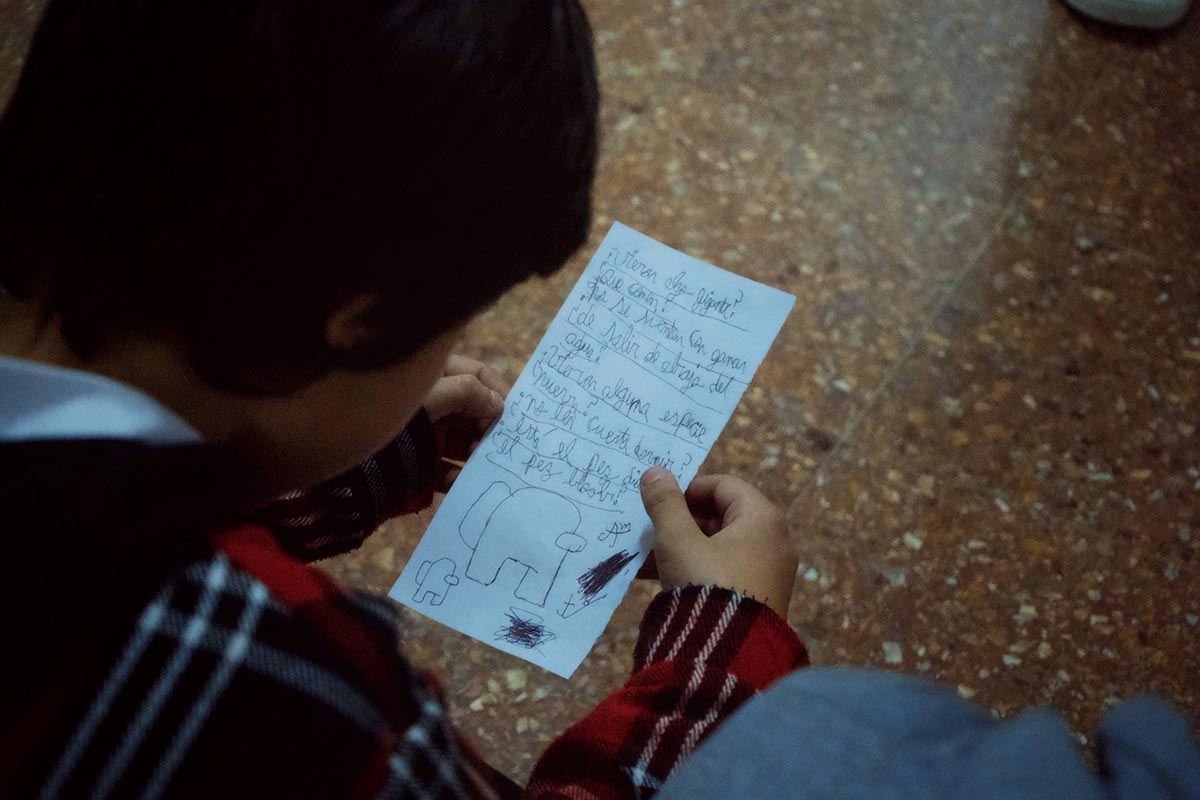 ¿Vieron algo gigante?
¿Que comen?
¿No se sienten con ganas
de salir de abajo del
agua?
¿Vieron alguna especie
nueva?
¿No les cuesta dormir?
¿Esta el pez
el pez